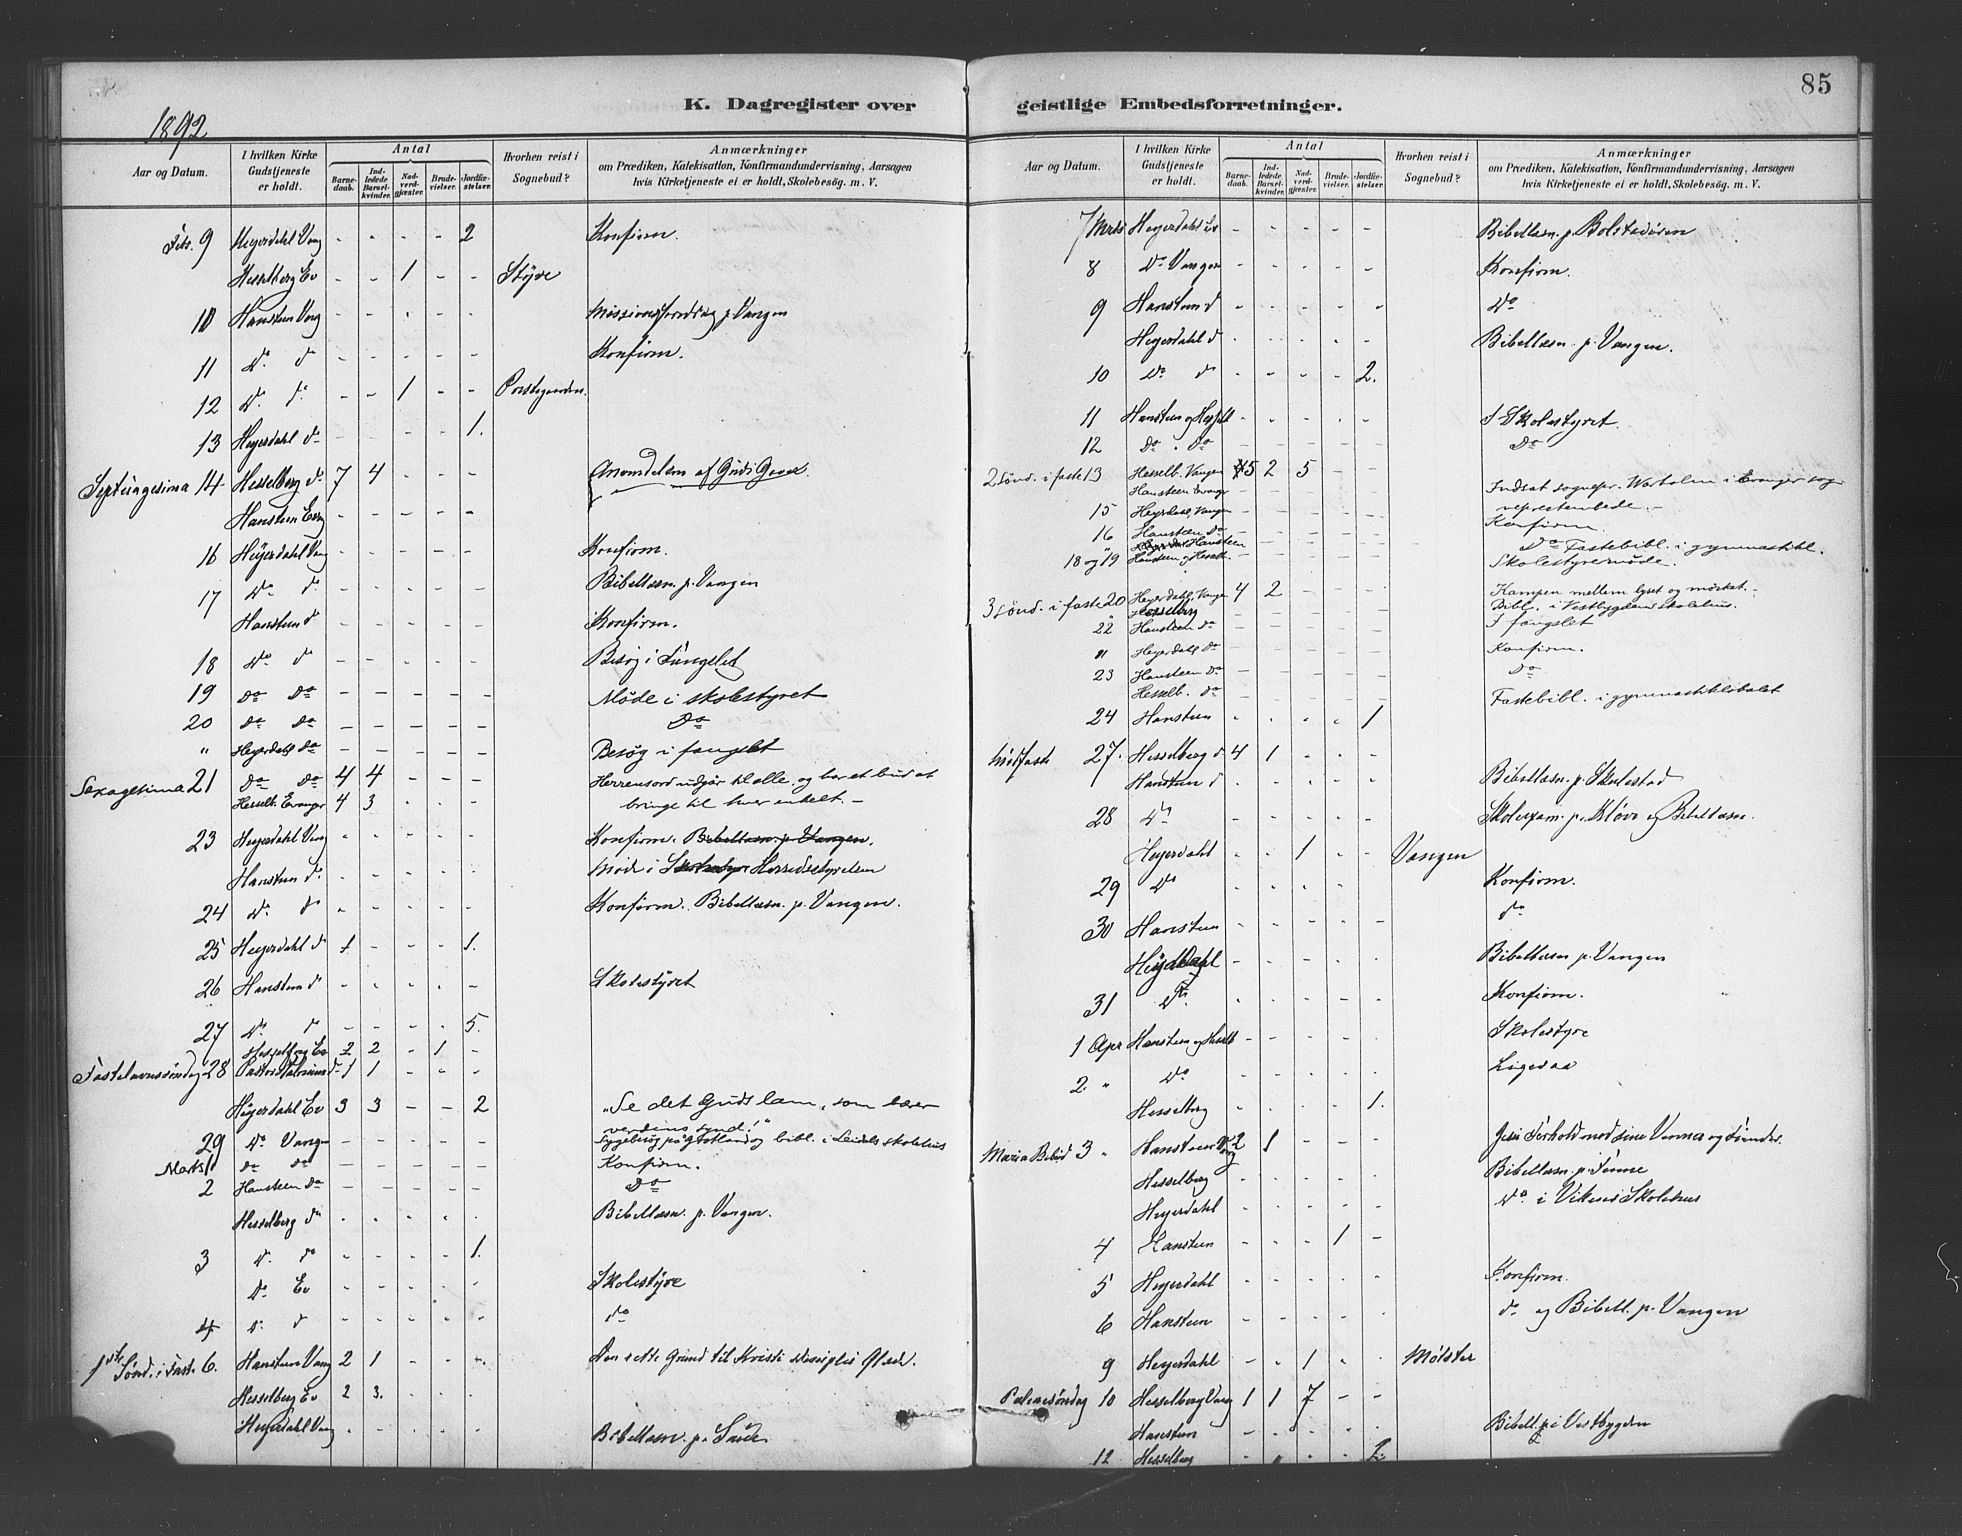 85
K. Dagregister over
geistlige Embedsforretninger.
1892
Aar og Datum.
I hvilken Kirke Gudstjeneste er holdt.
Antal
Barnedaab.
Indledede Barselkvinder.
Nadverdgjester.
Brudevielser.
Jordfæstelser.
Hvorhen reist i Sognebud?
Anmærkninger
om Prædiken, Katekisation, Konfirmandundervisning, Aarsagen
hvis Kirketjeneste ei er holdt, Skolebesøg. m. V.
Febr. 9 Heyerdahl Vang - - - - 2 Konfirm.
Hesselberg Ev - - 1 - - Støve
10 Hansteen Vang - - - - - Missionsforedrag p. Vangen
11 Do do - - - - - Konfirm.
12 Do do - - 1 - - Prestegaarden.
13 Heyerdahl do - - - - 1.
Septuagesima 14 Hesselberg do 7 4 - - - Anvendelsen af Guds Gaver
Hansteen Evang - - - - -
16 Heyerdahl Vang - - - - - Konfirm.
17 Do do - - - - - Bibellæsn. p. Vangen
Hansteen d - - - - - Konfirm.
18 Do d - - - - - Besøg i Fængslet
19 Do Do - - - - - Møde i skolestyret
20 Do Do - - - - - Do
" Heyerdahl Do - - - - - Besøg i fængslet
Sexagesima 21 Do Do 4 4 - - - Herrens ord udgår til alle, og har et bud at
Hesselb. Evanger 4 3 - - - bringe til hver enkelt. -
23 Heyerdahl Vang - - - - - Konfirm. Bibellæsn. p. Vangen.
Hansteen d. - - - - - Møde i Herredsstyrelsen
24 Do do - - - - - Konfirm. Bibellæsn. p. Vangen.
25 Heyerdahl d 1 - - - 1.
26 Hansteen d - - - - - Skolestyret
27 Do d - - - - 5.
Hesselberg Ev 2 2 - 1 -
Fastelavnssøndag 28 Pastor 1 1 - - -
Heyerdahl Ev 3 3 - - 2 "Se det Guds lam, som bærer
verdens synd!"
29 Do Vangen - - - - - Sygebesøg på Grotland og bibl. i Leidals skolehus
Marts 1 do do - - - - - Konfirm.
2 Hansteen Do - - - - - Do
Hesselberg do - - - - - Bibellæsn. p. Vangen.
3 Do do - - - - 1.
Do Ev - - - - - Skolestyre
4 D. d - - - - - do
1ste Sønd. i Fast. 6. Hansteen Vang 2 1 - - - Den rette Grund til Kristi Disciples Glæde.
Hesselberg Ev 2 3. - - -
Heyerdahl Vang - - - - - Bibellæsn. p. Saude
Aar og Datum.
I hvilken Kirke Gudstjeneste er holdt.
Antal
Barnedaab.
Indledede Barselkvinder.
Nadverdgjester.
Brudevielser.
Jordfæstelser.
Hvorhen reist i Sognebud?
Anmærkninger
om Prædiken, Katekisation, Konfirmandundervisning, Aarsagen
hvis Kirketjeneste ei er holdt, Skolebesøg. m. V.
7 Mrts Heyerdahl Ev - - - - - Bibellæsn. p. Bolstadøren
8 Do Vangen - - - - - Konfirm.
9 Hansteen d - - - - - Do
Heyerdahl d - - - - - Bibellæsn. p. Vangen.
10 Do do - - - - 2.
11 Hansteen og Hesselb - - - - - I Skolestyret.
12 Do . Do - - - - - Do
2 Sønd. i faste 13 Hesselb. Vangen 5 2 5 - -
Hansteen Evanger - - - - - Indsat sognepr. Wartolm i Evanger sogne-
15 Heyerdahl, Vangen - - - - - præstembede. -
16 Hansteen Do - - - - - Konfirm.
" Hansteen - - - - - Do Fastebibl. i gymnastikl.
18 og 19 Hansteen og Hesselb. - - - - - Skolestyremøde.
3 Sønd. i faste 20 Heyerdahl, Vangen 4 2 - - - Kampen mellem lyset og mørket. -
" Hesselberg - - - - - Bibl. i Vestbygdens skolehus.
22 Hansteen do - - - - - I fængslet
" Heyerdahl Do - - - - - Konfirm.
23 Hansteen Do - - - - - Do
Hesselb. Do - - - - - Fastebibl. i gymnastiklokalet
24 Hansteen - - - - 1
Midfaste 27. Hesselberg d 4 1 - - -
Hansteen d - - - - - Bibellæsn. p. Skulestad
28 Do - - - - - Skolexam. p. Kløve og Bibellæsn.
Heyerdahl - - 1 - - Vangen
29 Do - - - - - Konfirm.
30 Hansteen - - - - - do
Heyerdahl - - - - - Bibellæsn p. Vangen
31 Do - - - - - Konfirm.
1 Apr Hansteen og Hesselb - - - - - Skolestyre
2. " Do - - - - - Ligesaa
Hesselberg - - - - 1.
Maria Bebud 3 " Hansteen Vang 2 1 - - - Jesu Forhold mod sine Venner og Fiender.
Hesselberg - - - - - Bibellæsn. p. Finne
Heyerdahl - - - - - Do i Vikens Skolehus
4 Hansteen - - - 1 -
5 Heyerdahl - - - - - Konfirm.
6 Hansteen - - - - - do og Bibell. p. Vangen
9 Heyerdahl - - 1 - - Mølster
Palmesøndag 10 Hesselberg Vang 1 1 7 - -
Hansteen - - - - - Bibell. p. Vestbygden
12 Hesselberg 2.